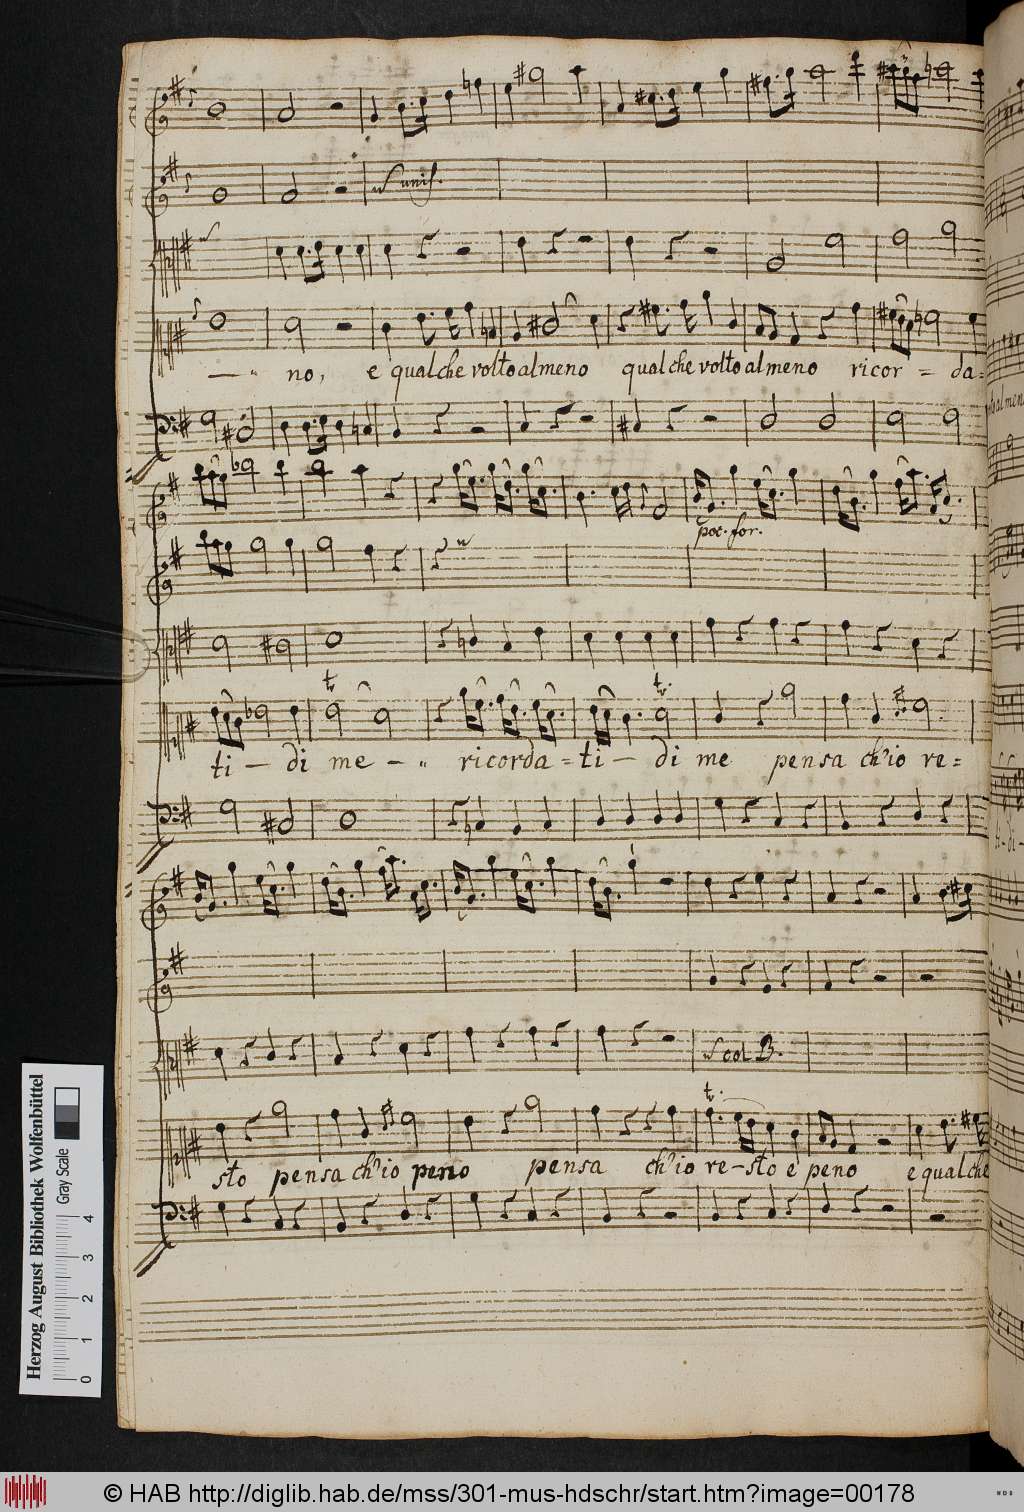 unis.
— " no, e qualche volto almeno qualche volto almeno ricor = da =
poc. for.
ti — di me — " ricorda = ti — di me pensa ch'io re =
col B.
sto pensa ch'io peno pensa ch'io re — sto e peno e qualche
Herzog August Bibliothek Wolfenbüttel
Gray Scale
0 1 2 3 4
© HAB http://diglib.hab.de/mss/301-mus-hdschr/start.htm?image=00178